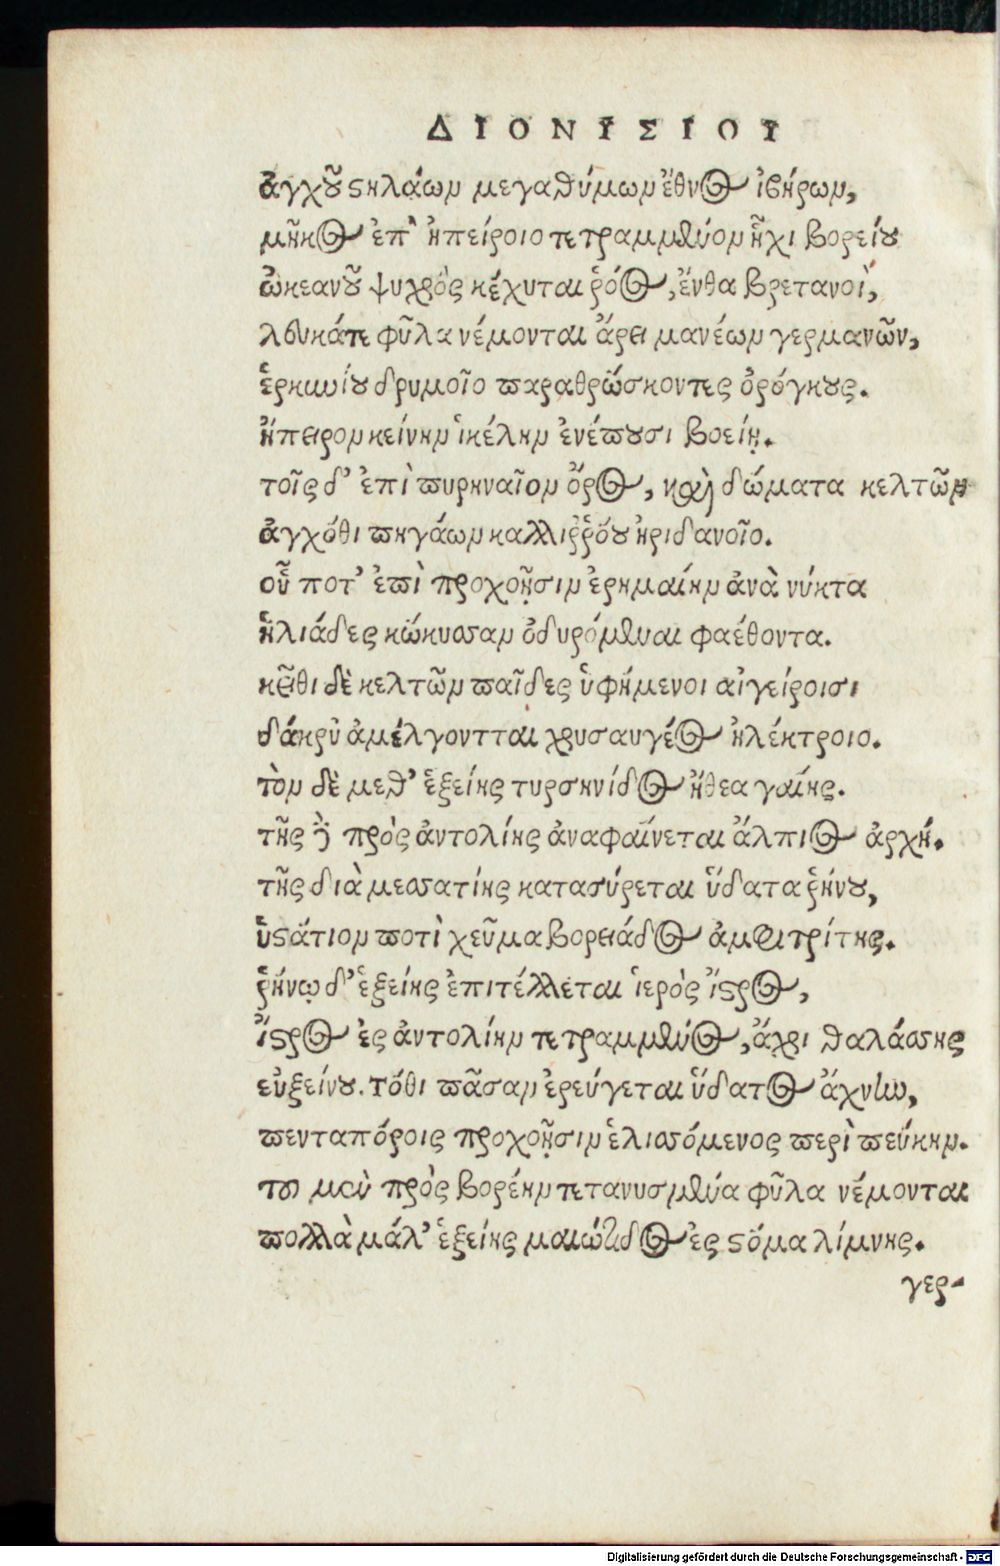 ΔΙΟΝΥΣΙΟΥ
ἀγχοῦ στηλάων μεγαθύμων ἔθνος ἰβήρων,
μῆκος ἐπ' ἠπείροιο τετραμμένον ἧχι βορείου
ὠκεανοῦ ψυχρὸς κέχυται ῥόος, ἔνθα βρετανοὶ,
λευκά τε φῦλα νέμονται ἄρει μανέων γερμανῶν,
ἑρκυνίου δρυμοῖο παραθρώσκοντες ὀρόγκους.
ἤπειρον κείνην ἰκέλην ἐνέπουσι βοείῃ.
τοῖς δ' ἐπὶ πυρηναῖον ὄρος, καὶ δώματα κελτῶν
ἀγχόθι πηγάων καλλιῤῥόου ἠριδανοῖο.
οὗ ποτ' ἐπὶ προχοῇσιν ἐρημαίην ἀνὰ νύκτα
ἡλιάδες κώκυσσαν ὀδυρόμεναι φαέθοντα.
κεῖθι δὲ κελτῶν παῖδες ὑφήμενοι αἰγείροισι
δάκρυ ἀμέλγοντται χρυσαυγέος ἠλέκτροιο.
τὸν δὲ μεθ' ἑξείης τυρσηνίδος ἤθεα γαίης.
τῆς δὲ πρὸς ἀντολίης ἀναφαίνεται ἄλπιος ἀρχή.
τῆς διὰ μεσσατίης κατασύρεται ὕδατα ῥήνου,
ὑστάτιον ποτὶ χεῦμα βορειάδος ἀμφιτρίτης.
ῥήνῳ δ' ἑξείης ἐπιτέλλεται ἱερὸς ἴστρος,
ἴστρος ἐς ἀντολίην τετραμμένος, ἄχρι θαλάσσης
εὐξείνου. τόθι πᾶσαν ἐρεύγεται ὕδατος ἄχνην,
πενταπόροις προχοῇσιν ἑλισσόμενος περὶ πεύκην.
τοῦ μὲν πρὸς βορέην τετανυσμένα φῦλα νέμονται
πολλὰ μάλ' ἑξείης μαιώτιδος ἐς στόμα λίμνης.
γερ-
Digitalisierung gefördert durch die Deutsche Forschungsgemeinschaft - DFG